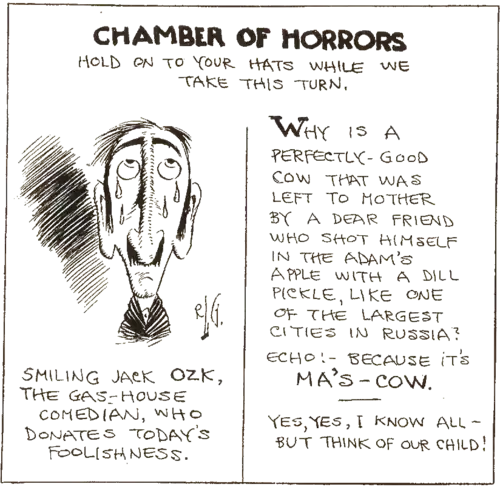 CHAMBER OF HORRORS
HOLD ON TO YOUR HATS WHILE WE
TAKE THIS TURN.
RLG.
SMILING JACK OZK,
THE GAS-HOUSE
COMEDIAN, WHO
DONATES TODAY'S
FOOLISHNESS.
WHY IS A
PERFECTLY-GOOD
COW THAT WAS
LEFT TO MOTHER
BY A DEAR FRIEND
WHO SHOT HIMSELF
IN THE ADAM'S
APPLE WITH A DILL
PICKLE, LIKE ONE
OF THE LARGEST
CITIES IN RUSSIA?
ECHO!- BECAUSE IT'S
MA'S-COW.
YES, YES, I KNOW ALL-
BUT THINK OF OUR CHILD!